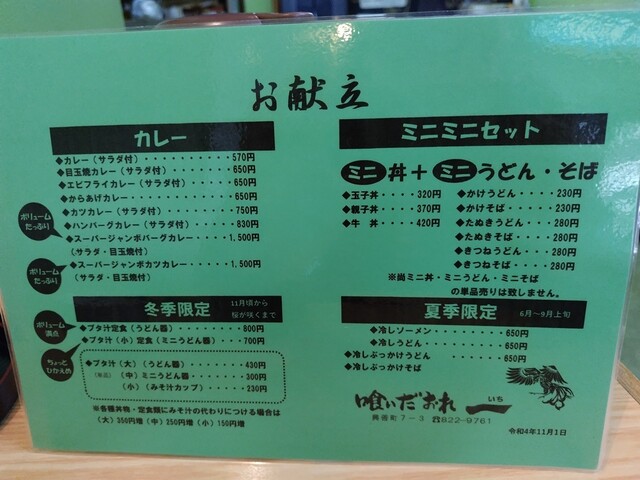 お献立
カレー
◆カレー（サラダ付）・・・・・・・・・・570円
◆目玉焼カレー（サラダ付）・・・・・・650円
◆エビフライカレー（サラダ付）・・・・650円
◆からあげカレー・・・・・・・・・・・650円
◆カツカレー（サラダ付）・・・・・・・750円
◆ハンバーグカレー（サラダ付）・・・・830円
ボリュームたっぷり
◆スーパージャンボバーグカレー・・・1,500円
（サラダ・目玉焼付）
ボリュームたっぷり
◆スーパージャンボカツカレー・・・・1,500円
（サラダ・目玉焼付）
冬季限定
11月頃から
桜が咲くまで
ボリューム満点
◆ブタ汁定食（うどん器）・・・・・・・800円
◆ブタ汁（小）定食（ミニうどん器）・・・700円
ちょっとひかえめ
◆ブタ汁（大）（うどん器）・・・・・・430円
（単品）（中）ミニうどん器・・・・・・300円
（小）（みそ汁カップ）・・・・・230円
※各種丼物・定食類にみそ汁の代わりにつける場合は
（大）350円増（中）250円増（小）150円増
ミニミニセット
ミニ丼＋ミニうどん・そば
◆玉子丼・・・・320円
◆親子丼・・・・370円
◆牛 丼・・・・420円
◆かけうどん・・・・230円
◆かけそば・・・・・230円
◆たぬきうどん・・・280円
◆たぬきそば・・・・280円
◆きつねうどん・・・280円
◆きつねそば・・・・280円
※尚ミニ丼・ミニうどん・ミニそば
の単品売りは致しません。
夏季限定
6月～9月上旬
◆冷しソーメン・・・・・・・650円
◆冷しうどん・・・・・・・・650円
◆冷しぶっかけうどん・・・・650円
◆冷しぶっかけそば
喰いだおれ 一
いち
7－3 ☎822-9761
令和4年11月1日